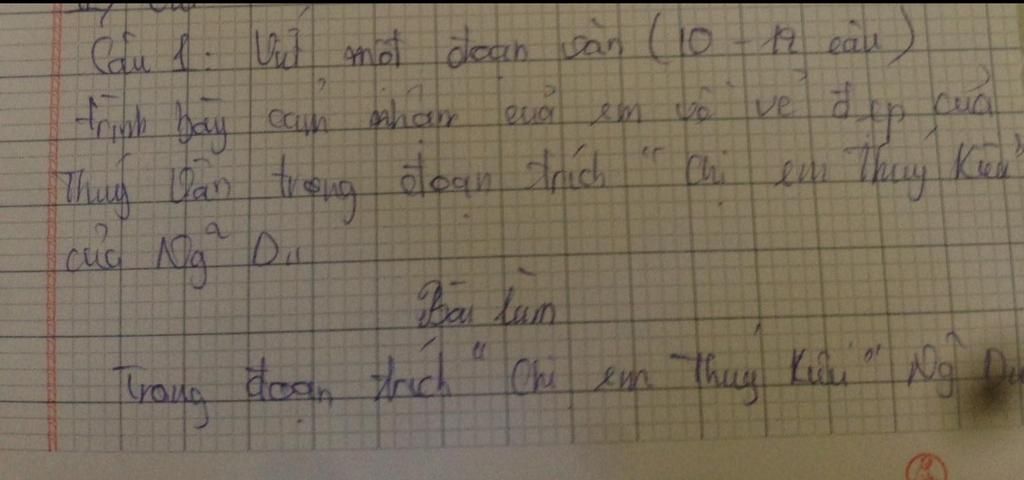 Câu 1: Viết một đoạn văn (10 - 12 câu)
trình bày cảm nhận của em về vẻ đẹp của
Thuý Vân trong đoạn trích "Chị em Thuý Kiều"
của Ngã Du
Bài làm
Trong đoạn trích "Chị em Thuý Kiều" Ngã Du